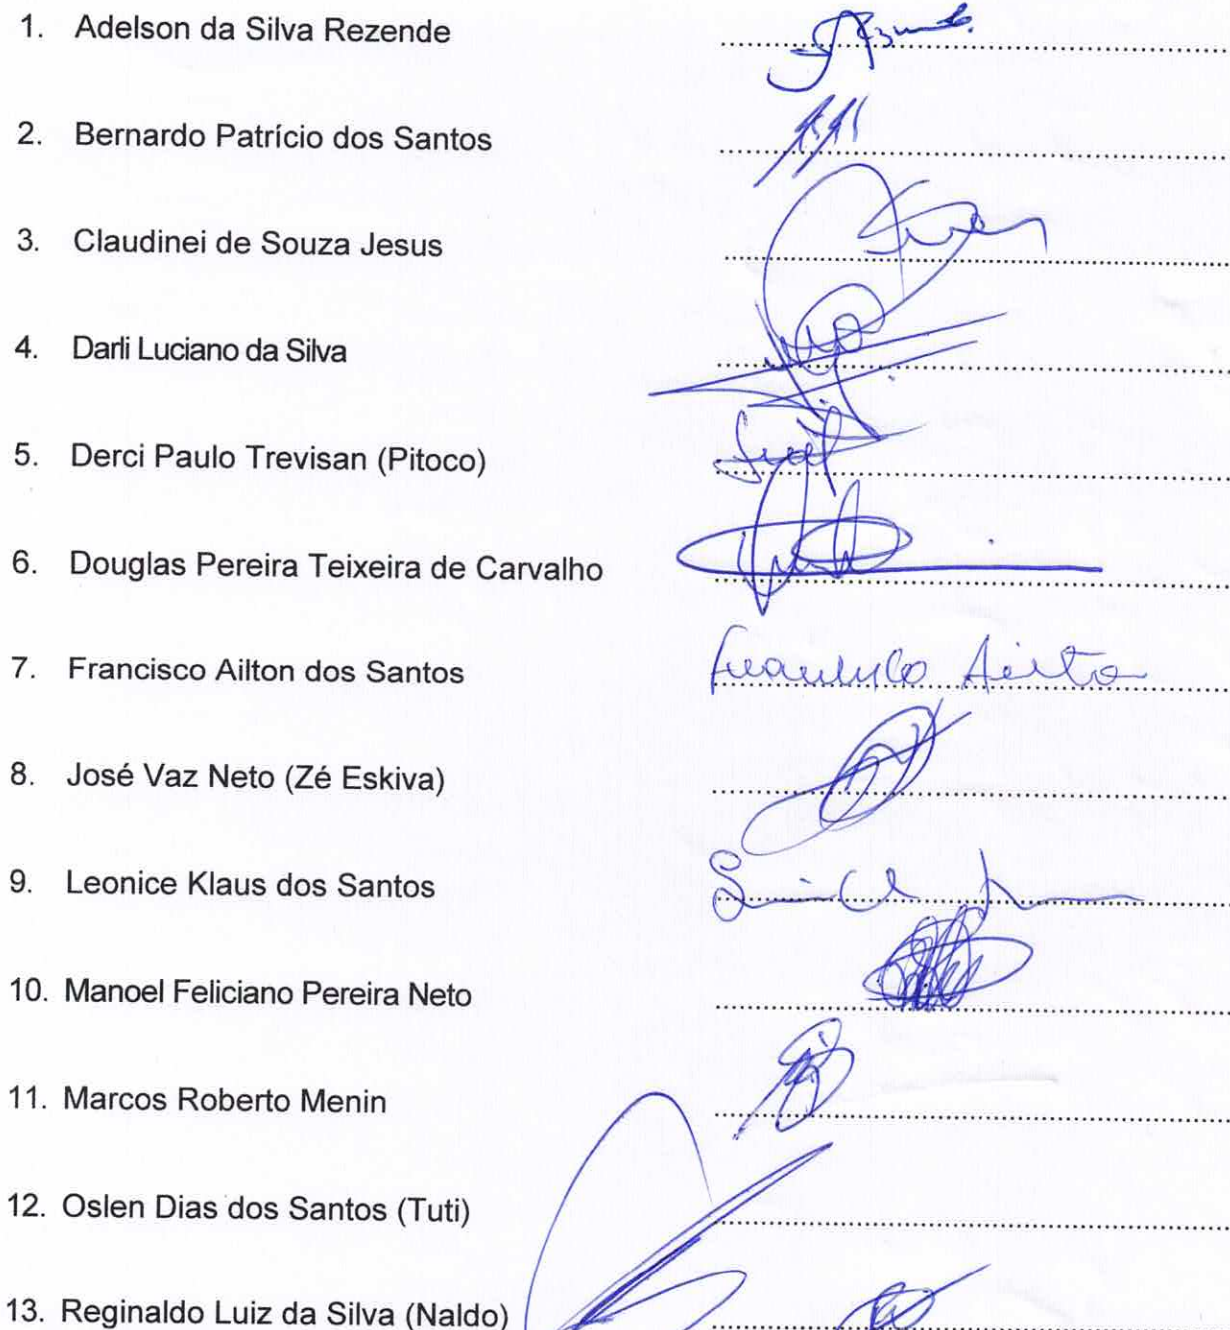 1. Adelson da Silva Rezende
2. Bernardo Patrício dos Santos
3. Claudinei de Souza Jesus
4. Darli Luciano da Silva
5. Derci Paulo Trevisan (Pitoco)
6. Douglas Pereira Teixeira de Carvalho
7. Francisco Ailton dos Santos
8. José Vaz Neto (Zé Eskiva)
9. Leonice Klaus dos Santos
10. Manoel Feliciano Pereira Neto
11. Marcos Roberto Menin
12. Oslen Dias dos Santos (Tuti)
13. Reginaldo Luiz da Silva (Naldo)